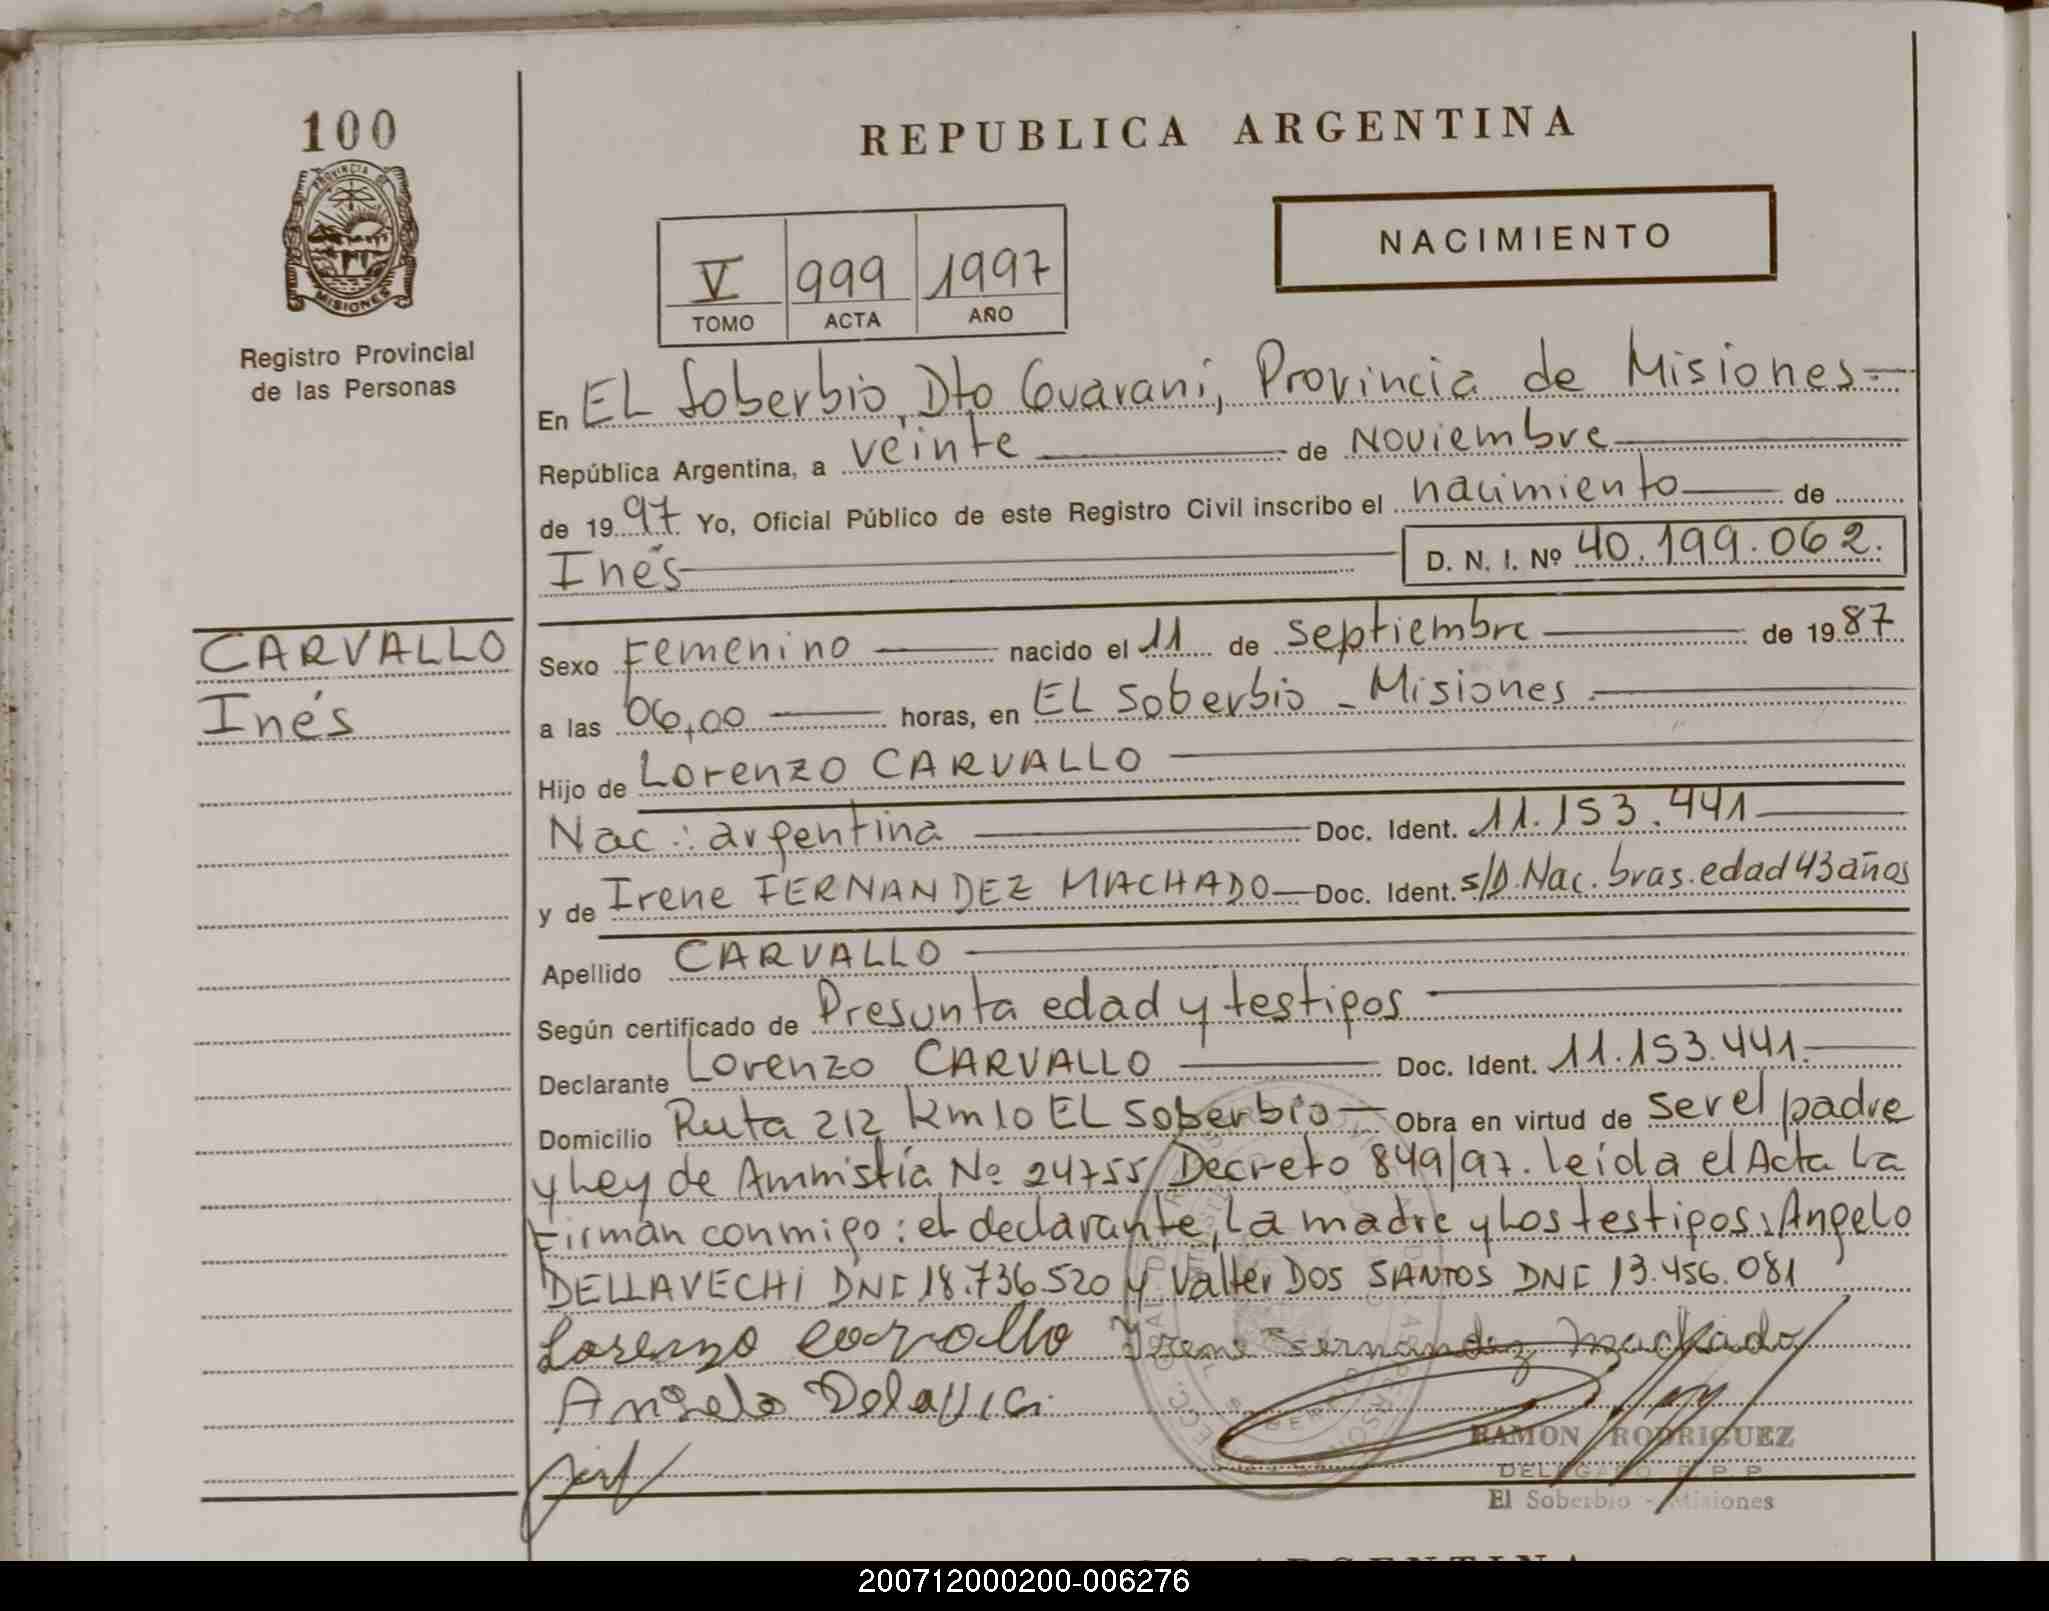 100
PROVINCIA DE
MISIONES
Registro Provincial
de las Personas
CARVALLO
Inés
REPUBLICA ARGENTINA
NACIMIENTO
V 999 1997
TOMO ACTA AÑO
En EL Soberbio, Dto Guaraní, Provincia de Misiones
República Argentina, a veinte de Noviembre
de 1997 Yo, Oficial Público de este Registro Civil inscribo el nacimiento de
Inés D. N. I. Nº 40.199.062.
Sexo Femenino nacido el 11 de septiembre de 1987
a las 06,00 horas, en EL Soberbio - Misiones
Hijo de Lorenzo CARVALLO
Nac: argentina Doc. Ident. 11.153.441
y de Irene FERNANDEZ MACHADO Doc. Ident. s/D. Nac. bras. edad 43 años
Apellido CARVALLO
Según certificado de Presunta edad y testigos
Declarante Lorenzo CARVALLO Doc. Ident. 11.153.441.
Domicilio Ruta 212 km 10 EL Soberbio Obra en virtud de ser el padre
y Ley de Ammistía Nº 24755/Decreto 849/97. leída el Acta La
Firman conmigo: el declarante, la madre y los testigos: Angelo
DELLAVECHI DNI 18.736.520 y Valter DOS SANTOS DNI 13.456.081
Lorenzo Carvallo Irene Fernandez Machado
Angelo
RAMON RODRIGUEZ
DELEGADO R P P
El Soberbio - Misiones
200712000200-006276